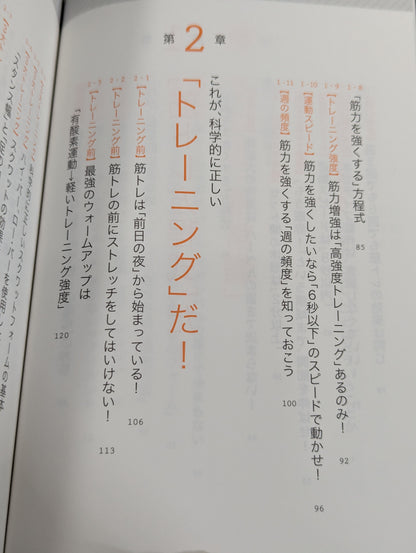 1-8
「筋力を強くする」方程式
85
1-9
【トレーニング強度】筋力増強は「高強度トレーニング」あるのみ！
92
1-10
【運動スピード】筋力を強くしたいなら「6秒以下」のスピードで動かせ！
96
1-11
【週の頻度】筋力を強くする「週の頻度」を知っておこう
100
第2章
これが、科学的に正しい
「トレーニング」だ！
2-1
【トレーニング前】筋トレは「前日の夜」から始まっている！
106
2-2
【トレーニング前】筋トレの前にストレッチをしてはいけない！
113
2-3
【トレーニング前】最強のウォームアップは
「有酸素運動→軽いトレーニング強度」
120